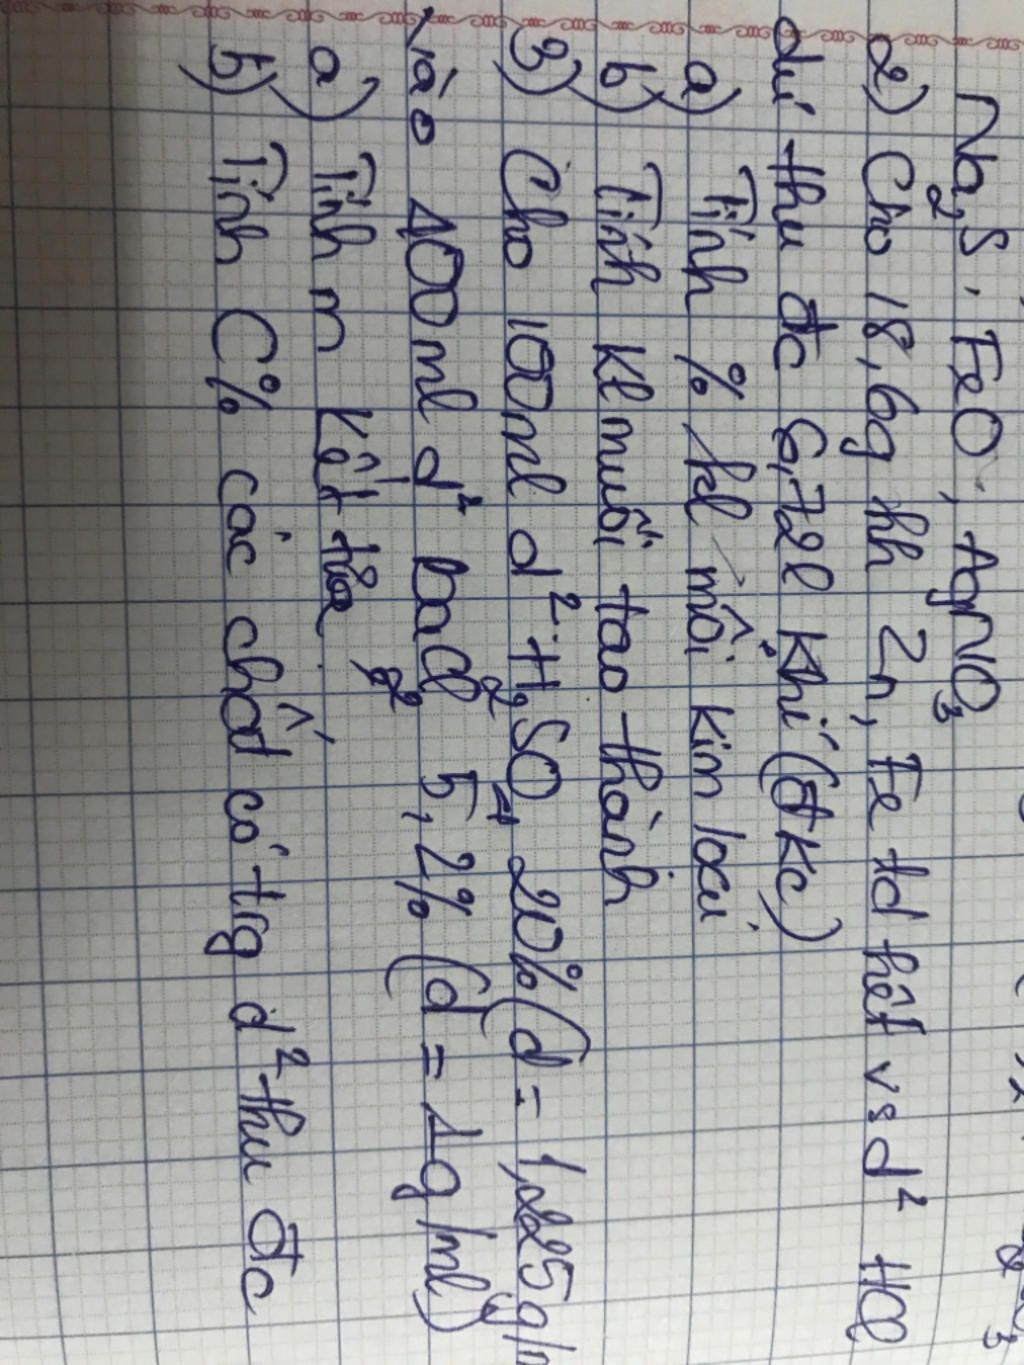 Na2S, FeO, AgNO3
2) Cho 18,6g hh Zn, Fe td hết vs d² HCl
dư thu đc 6,72l khí (đkc)
a) Tính % kl mỗi kim loại
b) Tính kl muối tạo thành
3) Cho 100ml d² H2SO4 20% (d = 1,225g/m
vào 400ml d² BaCl2 5,2% (d = 1g/ml)
a) Tính m kết tủa
b) Tính C% các chất có trg d² thu đc